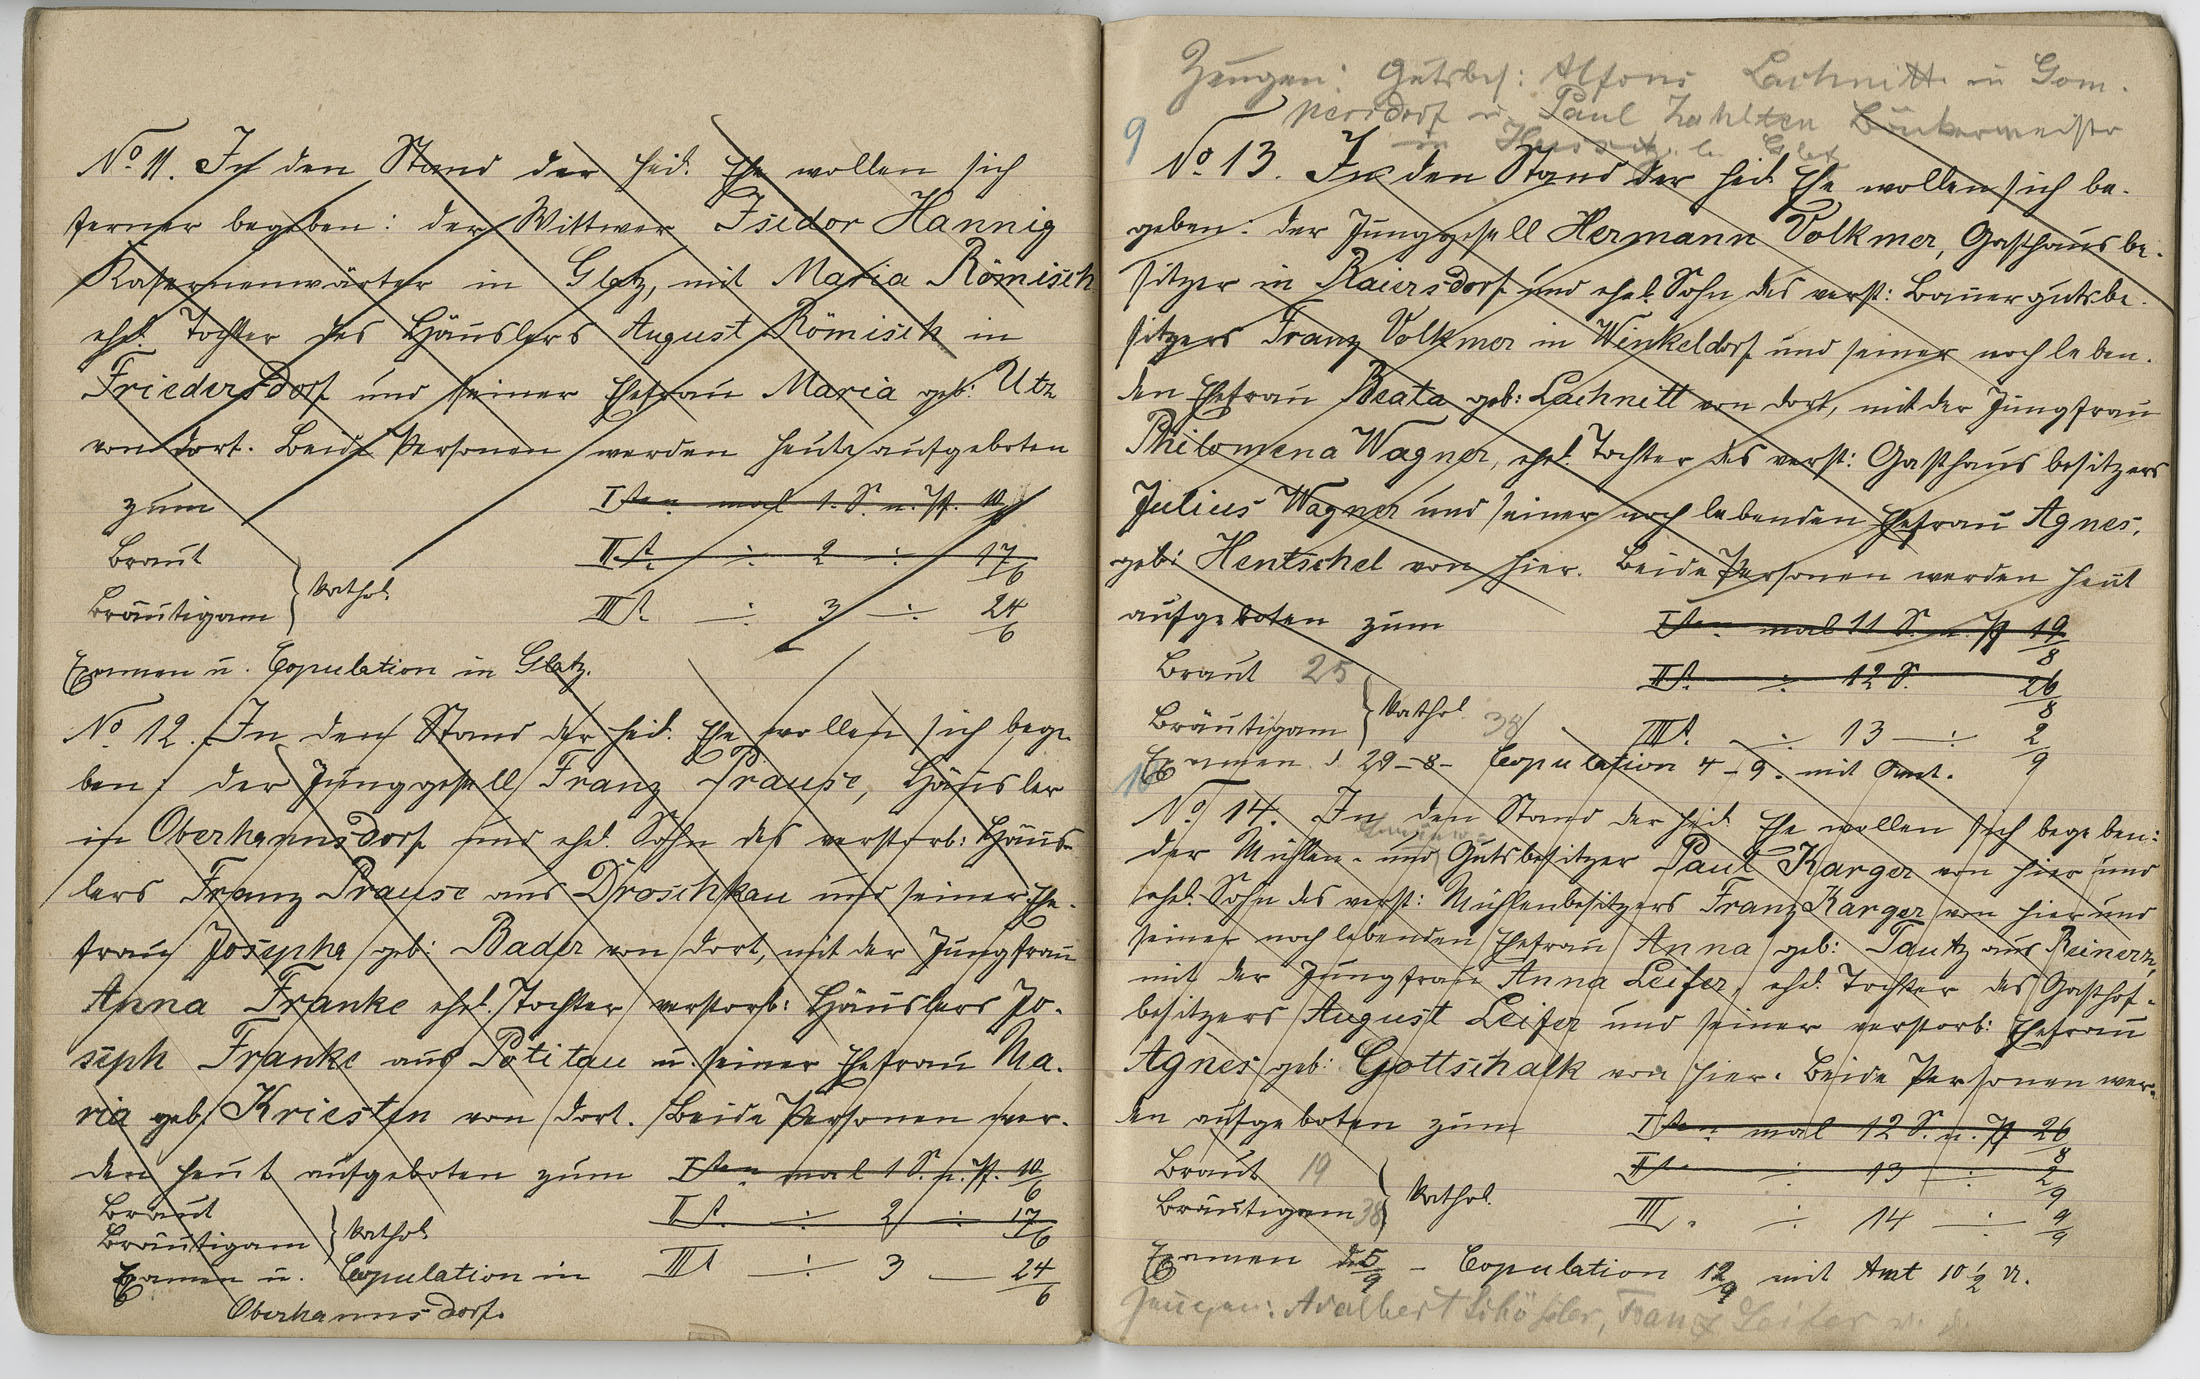 No 11. In den Stand der heil. Ehe wollen sich
ferner begeben: der Wittwer Isidor Hannig
Kasernenwärter in Glatz, mit Maria Römisch
ehel. Tochter des Häuslers August Römisch in
Friedersdorf und seiner Ehefrau Maria geb: Utz
von dort. Beide Personen werden heute aufgeboten
zum Iten mal 1. S. n. Pf. 10/6
Braut IIt. ÷ 2 ÷ 17/6
Bräutigam } kathol. IIIt. ÷ 3 ÷ 24/6
Examen u. Copulation in Glatz.
No 12. In den Stand der heil. Ehe wollen sich bege-
ben: der Junggesell Franz Prause, Häusler
in Oberhannsdorf und ehel. Sohn des verstorb: Häus-
lers Franz Prause aus Droschkau und seiner Ehe-
frau Josepha geb: Bader von dort, mit der Jungfrau
Anna Franke ehel. Tochter verstorb: Häuslers Jo-
seph Franke aus Potitau u. seiner Ehefrau Ma-
ria geb: Kriesten von dort. Beide Personen wer-
den heut aufgeboten zum Iten mal 1 S. n. Pf. 10/6
Braut IIt. ÷ 2 ÷ 17/6
Bräutigam } kathol.
Examen u. Copulation in IIIt ÷ 3 — 24/6
Oberhannsdorf.
Zeugen: Gutsbes: Alfons Lachnitt in Gom-
persdorf u. Paul Bäckermeister
in
9
No 13. In den Stand der heil. Ehe wollen sich be-
geben: der Junggesell Hermann Volkmer, Gasthausbe-
sitzer in Raiersdorf und ehel. Sohn des verst: Bauergutsbe-
sitzers Franz Volkmer in Winkeldorf und seiner noch leben-
den Ehefrau Beata geb: Lachnitt von dort, mit der Jungfrau
Philomena Wagner, ehel. Tochter des verst: Gasthausbesitzers
Julius Wagner und seiner noch lebenden Ehefrau Agnes,
geb: Hentschel von hier. Beide Personen werden heut
aufgeboten zum Iten mal 11 S. n. Pf 19/8
Braut 25 IIt. ÷ 12 S. 26/8
Bräutigam } kathol. 38 IIIt. ÷ 13 ÷ 2/9
Examen d. 29-8- Copulation 4-9. mit Amt.
10
No 14. In den Stand der heil. Ehe wollen sich begeben:
der Mühlen- und Gutsbesitzer Paul Karger von hier und
ehel. Sohn des verst: Mühlenbesitzers Franz Karger von hier und
seiner noch lebenden Ehefrau Anna geb: Tautz aus Reinerz,
mit der Jungfrau Anna Leifer, ehel. Tochter des Gasthof-
besitzers August Leifer und seiner verstorb: Ehefrau
Agnes geb: Gottschalk von hier. Beide Personen wer-
den aufgeboten zum Iten mal 12 S. n. Pf 26/8
Braut 19 IIt. ÷ 13 ÷ 2/9
Bräutigam 38 } kathol. III. ÷ 14 ÷ 9/9
Examen d. 5/9 - Copulation 12/9 mit Amt 10 ½ U.
Zeugen: Adalbert Franz Leifer